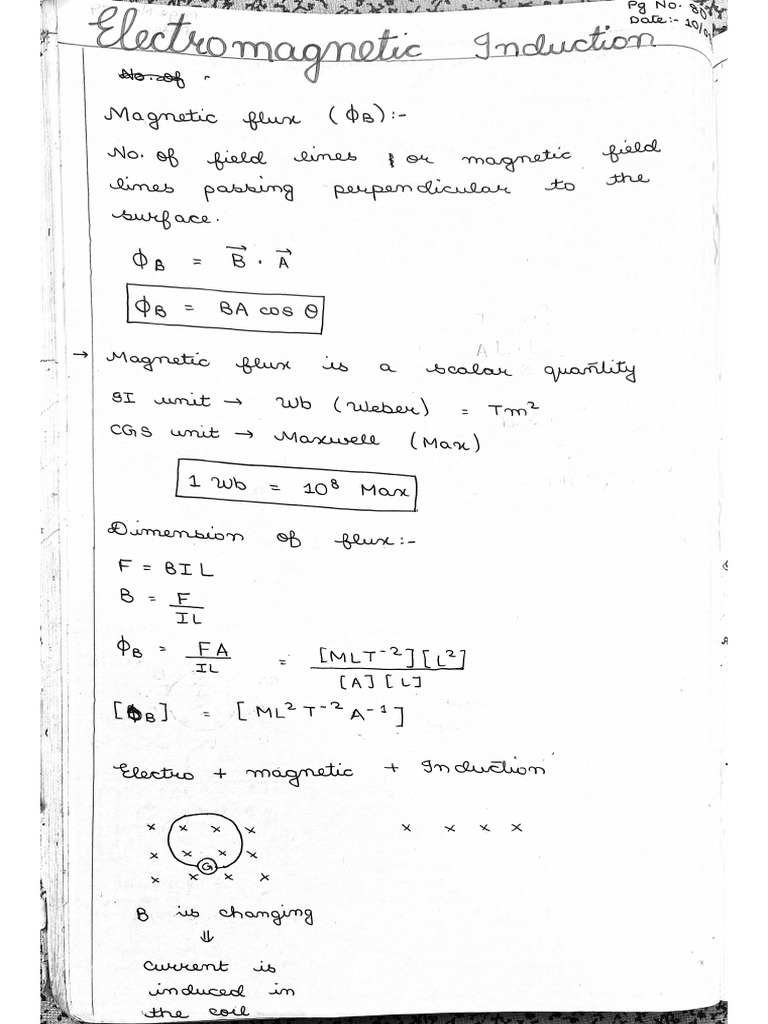 Pg No.
Date:- 10/0
Electromagnetic Induction
No. of
Magnetic flux (ΦB):-
No. of field lines or magnetic field
lines passing perpendicular to the
surface.
ΦB = B⃗ . A⃗
ΦB = BA cos θ
→ Magnetic flux is a scalar quantity
SI unit → Wb (Weber) = Tm²
CGS unit → Maxwell (Max)
1 Wb = 10⁸ Max
Dimension of flux:-
F = BIL
B = F/IL
ΦB = FA/IL = [MLT⁻²][L²]/[A][L]
[ΦB] = [ML²T⁻²A⁻¹]
Electro + magnetic + Induction
x x x x x x x x
x x x x
G
x x x x
B is changing
⇓
current is
induced in
the coil